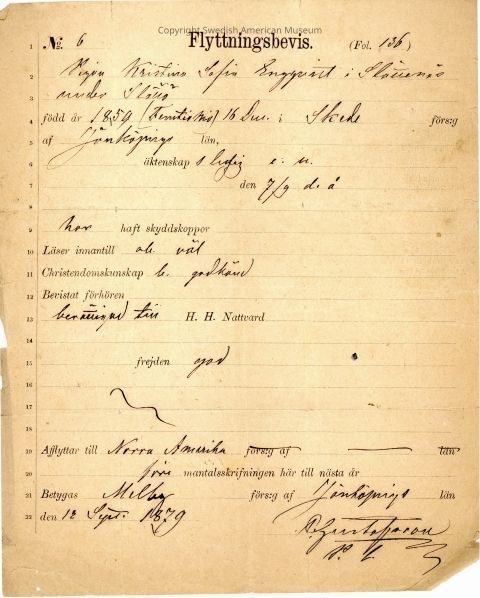 Copyright Swedish American Museum
No. 6 Flyttningsbevis. (Fol. 136)
1
2 Pigan Kristina Sofia Engqvist i
3 under
4 född år 1859 (Femtio nio) 16 Dec. i Skede förs:g
5 af Jönköpings län,
6 äktenskap s ledig
7 den 7/9 d. å
8
9 har haft skyddskoppor
10 Läser innantill ob. väl
11 Christendomskunskap b. godkänd
12 Bevistat förhören
13 berättigad till H. H. Nattvard
14
15 frejden god
16
17
18
19 Afflyttar till Norra Amerika förs:g af län
20 före mantalsskrifningen här till nästa år
21 Betygas Melby förs:g af Jönköpings län
22 den 12 Sept. 1879
Gustafsson